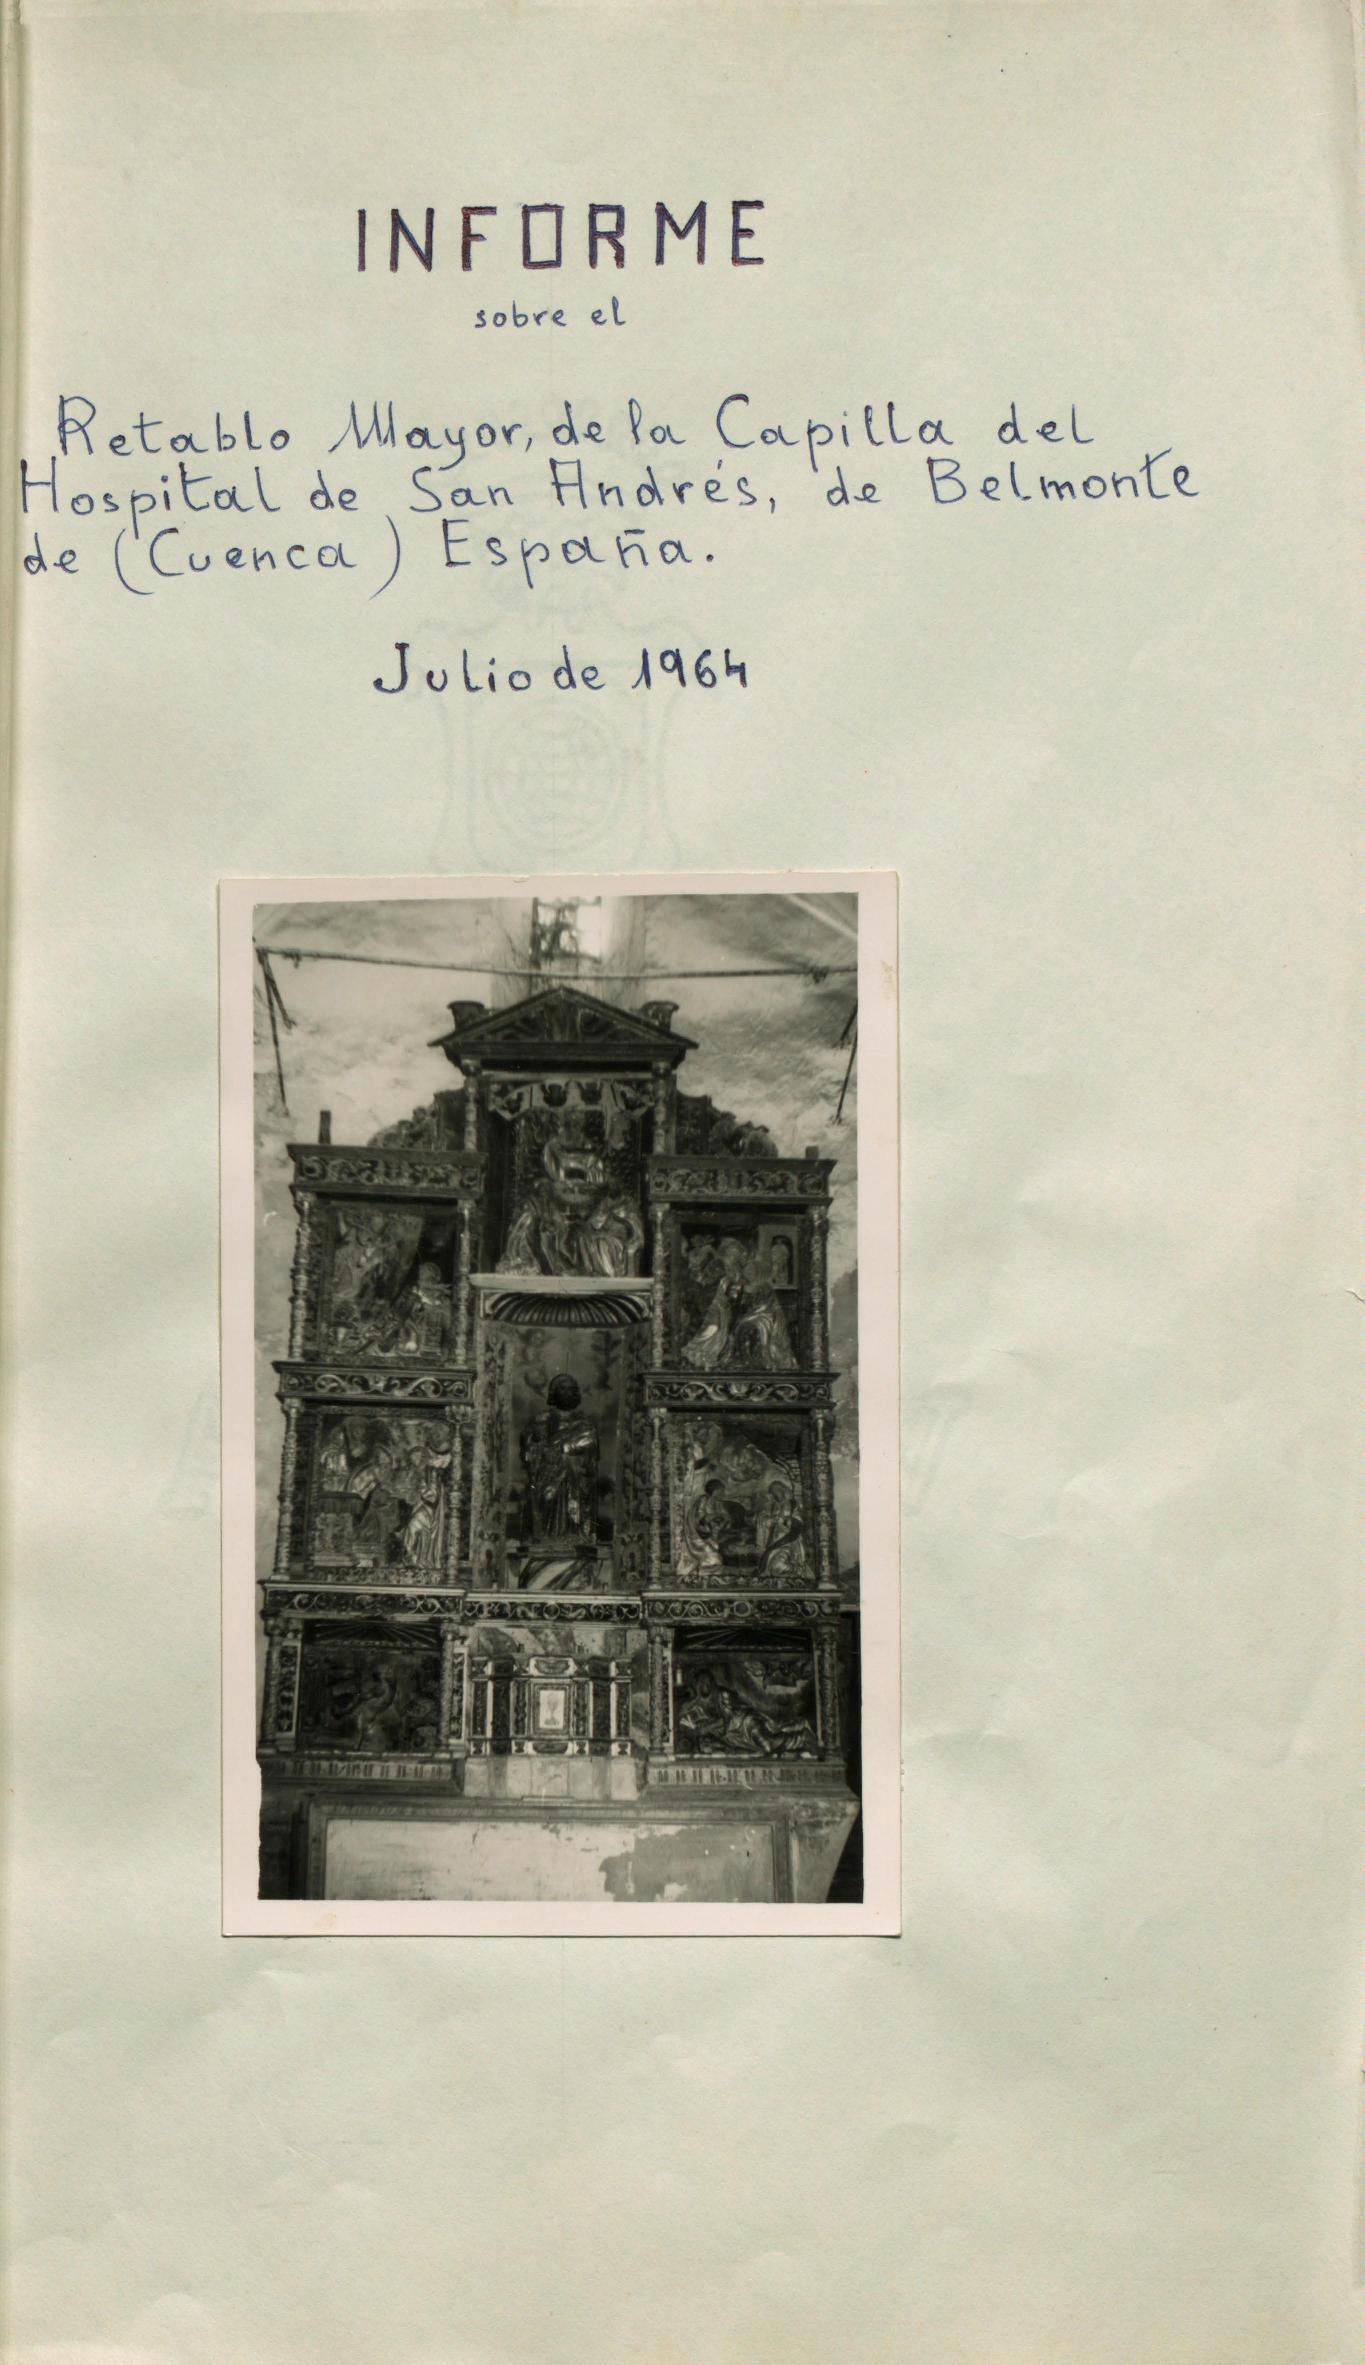 INFORME
sobre el
Retablo Mayor, de la Capilla del
Hospital de San Andrés, de Belmonte
de (Cuenca) España.
Julio de 1964